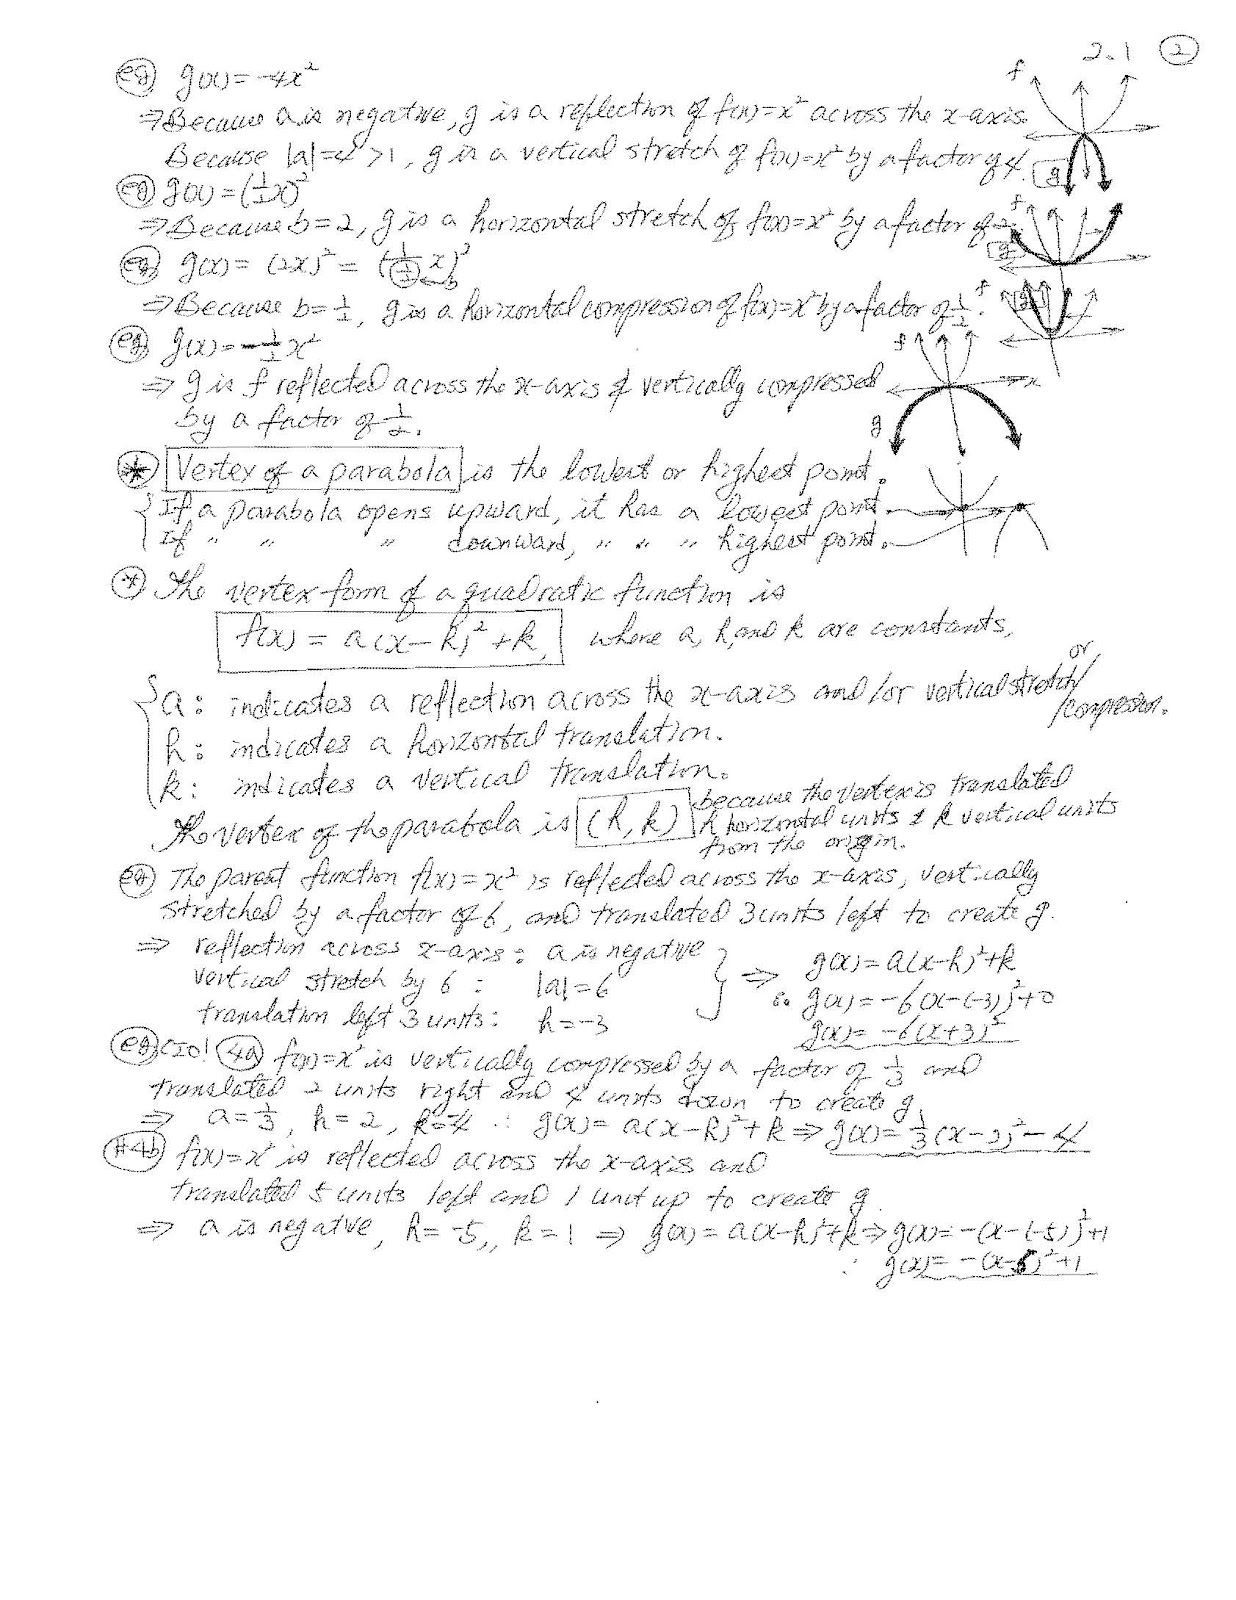 2.1 ②
eg g(x) = -4x²
⇒ Because a is negative, g is a reflection of f(x) = x² across the x-axis.
Because |a| = 4 > 1, g is a vertical stretch of f(x) = x² by a factor of 4.
f
g
eg g(x) = (½x)²
⇒ Because b = 2, g is a horizontal stretch of f(x) = x² by a factor of 2.
f
g
eg g(x) = (2x)² = (1/(½) x)²
b
⇒ Because b = ½, g is a horizontal compression of f(x) = x² by a factor of ½.
f
g
eg g(x) = -½x²
⇒ g is f reflected across the x-axis & vertically compressed
by a factor of ½.
f
x
g
* Vertex of a parabola is the lowest or highest point.
{ If a parabola opens upward, it has a lowest point.
If " " " downward, " " " highest point.
* The vertex form of a quadratic function is
f(x) = a(x-h)² + k, where a, h, and k are constants,
{ a: indicates a reflection across the x-axis and/or vertical stretch or /compression.
h: indicates a horizontal translation.
k: indicates a vertical translation.
The vertex of the parabola is (h, k) because the vertex is translated
h horizontal units & k vertical units
from the origin.
eg The parent function f(x) = x² is reflected across the x-axis, vertically
stretched by a factor of 6, and translated 3 units left to create g.
⇒ reflection across x-axis: a is negative
vertical stretch by 6: |a| = 6
translation left 3 units: h = -3
} ⇒ g(x) = a(x-h)² + k
∴ g(x) = -6(x-(-3))² + 0
g(x) = -6(x+3)²
eg CIO! 4a f(x) = x² is vertically compressed by a factor of ⅓ and
translated 2 units right and 4 units down to create g.
⇒ a = ⅓, h = 2, k = -4 ∴ g(x) = a(x-h)² + k ⇒ g(x) = ⅓(x-2)² - 4
#4b f(x) = x² is reflected across the x-axis and
translated 5 units left and 1 unit up to create g.
⇒ a is negative, h = -5, k = 1 ⇒ g(x) = a(x-h)² + k ⇒ g(x) = -(x-(-5))² + 1
∴ g(x) = -(x-5)² + 1